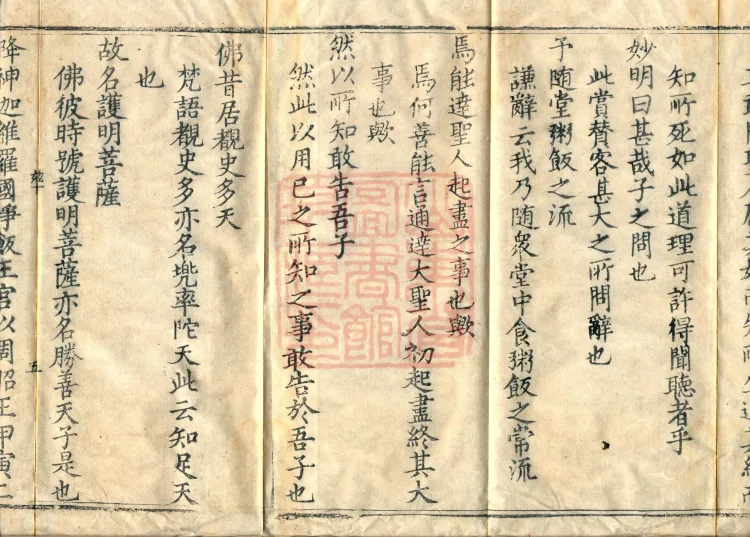 知所死如此道理可許得聞聽者乎
妙明曰甚哉子之問也
此賞賛客甚大之所問辭也
予随堂粥飯之流
謙辭云我乃随衆堂中食粥飯之常流
焉能達聖人起盡之事也歟
焉何善能言通達大聖人初起盡終其大
事也歟
然以所知敢告吾子
然此以用已之所知之事敢告於吾子也
佛昔居覩史多天
梵語覩史多亦名兠率陀天此云知足天
也
故名護明菩薩
佛彼時號護明菩薩亦名勝善天子是也
降神迦維羅國淨飯王宫以周昭王甲寅二
五